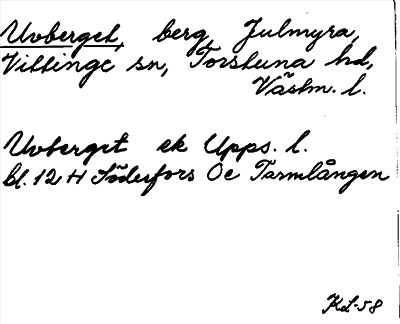 Uvberget, berg, Julmyra,
Vittinge sn, Torstuna hd,
Västm. l.
Uvberget ek Upps. l.
bl. 12 H Söderfors Oc Tarmlången
KL-58